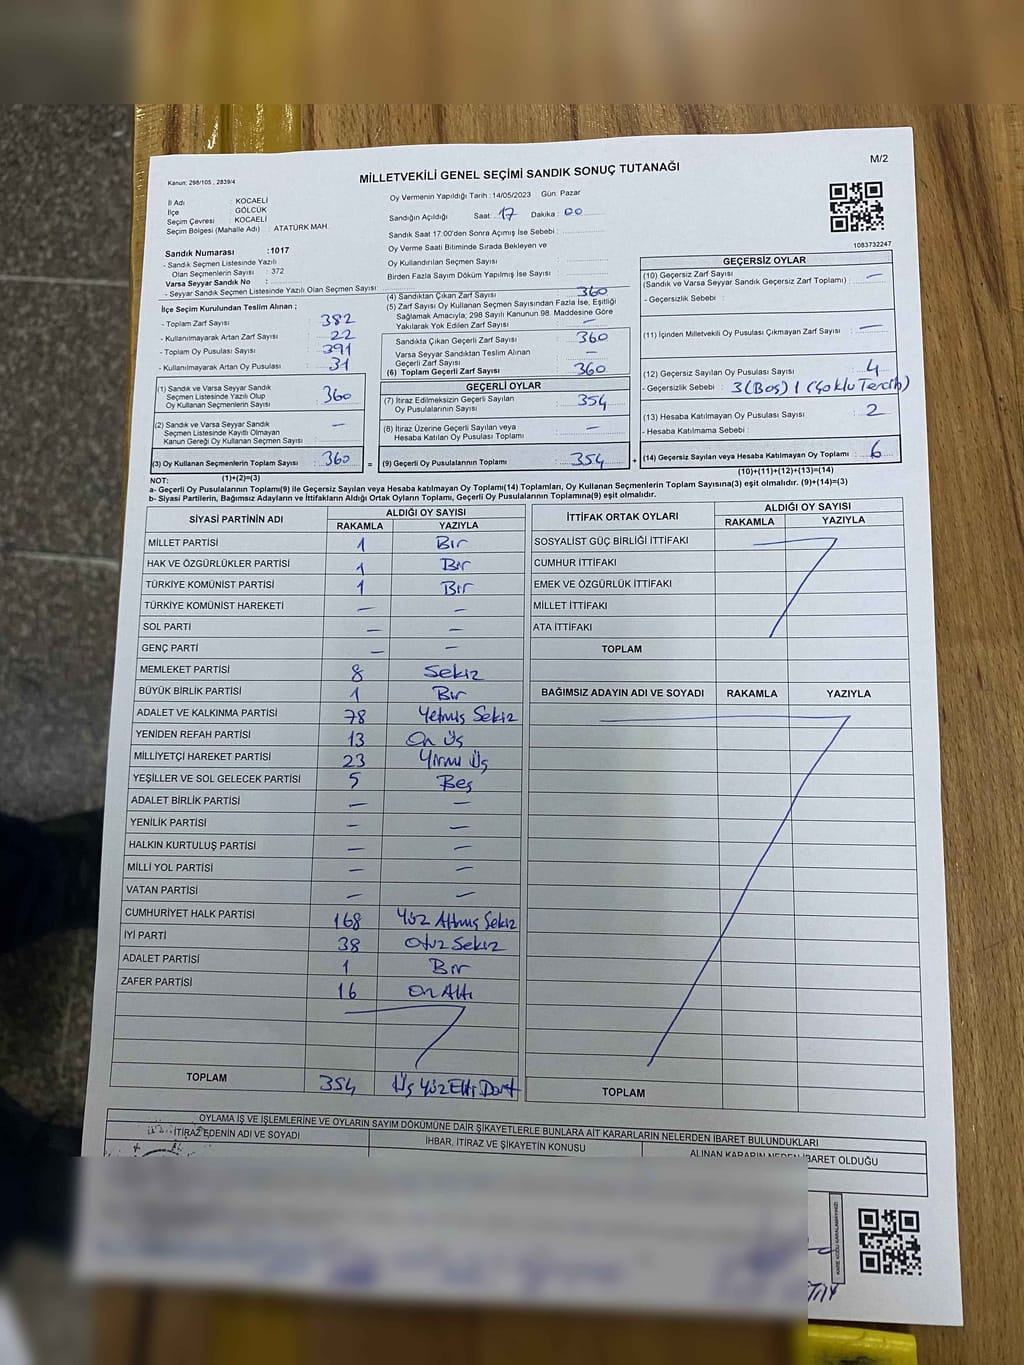 MİLLETVEKİLİ GENEL SEÇİMİ SANDIK SONUÇ TUTANAĞI
M/2
Kanun; 298/105 , 2839/4
İl Adı : KOCAELİ
İlçe : GÖLCÜK
Seçim Çevresi : KOCAELİ
Seçim Bölgesi (Mahalle Adı) : ATATÜRK MAH.
Sandık Numarası :1017
- Sandık Seçmen Listesinde Yazılı
Olan Seçmenlerin Sayısı : 372
Varsa Seyyar Sandık No :
- Seyyar Sandık Seçmen Listesinde Yazılı Olan Seçmen Sayısı:
Oy Vermenin Yapıldığı Tarih :14/05/2023 Gün: Pazar
Sandığın Açıldığı Saat: 17 Dakika : 00
Sandık Saat 17:00'den Sonra Açılmış İse Sebebi :
Oy Verme Saati Bitiminde Sırada Bekleyen ve
Oy Kullandırılan Seçmen Sayısı :
Birden Fazla Sayım Döküm Yapılmış İse Sayısı :
1083732247
İlçe Seçim Kurulundan Teslim Alınan ;
- Toplam Zarf Sayısı : 382
- Kullanılmayarak Artan Zarf Sayısı : 22
- Toplam Oy Pusulası Sayısı : 391
- Kullanılmayarak Artan Oy Pusulası : 31
(1) Sandık ve Varsa Seyyar Sandık
Seçmen Listesinde Yazılı Olup
Oy Kullanan Seçmenlerin Sayısı : 360
(2) Sandık ve Varsa Seyyar Sandık
Seçmen Listesinde Kayıtlı Olmayan
Kanun Gereği Oy Kullanan Seçmen Sayısı : —
(3) Oy Kullanan Seçmenlerin Toplam Sayısı : 360
(1)+(2)=(3)
(4) Sandıktan Çıkan Zarf Sayısı : 360
(5) Zarf Sayısı Oy Kullanan Seçmen Sayısından Fazla İse, Eşitliği
Sağlamak Amacıyla, 298 Sayılı Kanunun 98. Maddesine Göre
Yakılarak Yok Edilen Zarf Sayısı : —
Sandıkta Çıkan Geçerli Zarf Sayısı : 360
Varsa Seyyar Sandıktan Teslim Alınan
Geçerli Zarf Sayısı : —
(6) Toplam Geçerli Zarf Sayısı : 360
GEÇERLİ OYLAR
(7) İtiraz Edilmeksizin Geçerli Sayılan
Oy Pusulalarının Sayısı : 354
(8) İtiraz Üzerine Geçerli Sayılan veya
Hesaba Katılan Oy Pusulası Toplamı : —
= (9) Geçerli Oy Pusulalarının Toplamı : 354 +
GEÇERSİZ OYLAR
(10) Geçersiz Zarf Sayısı
(Sandık ve Varsa Seyyar Sandık Geçersiz Zarf Toplamı) : —
- Geçersizlik Sebebi :
(11) İçinden Milletvekili Oy Pusulası Çıkmayan Zarf Sayısı : —
(12) Geçersiz Sayılan Oy Pusulası Sayısı : 4
- Geçersizlik Sebebi : 3 (Boş) 1 (Çoklu Tercih)
(13) Hesaba Katılmayan Oy Pusulası Sayısı : 2
- Hesaba Katılmama Sebebi :
(14) Geçersiz Sayılan veya Hesaba Katılmayan Oy Toplamı : 6
(10)+(11)+(12)+(13)=(14)
NOT:
a- Geçerli Oy Pusulalarının Toplamı(9) ile Geçersiz Sayılan veya Hesaba katılmayan Oy Toplamı(14) Toplamları, Oy Kullanan Seçmenlerin Toplam Sayısına(3) eşit olmalıdır. (9)+(14)=(3)
b- Siyasi Partilerin, Bağımsız Adayların ve İttifakların Aldığı Ortak Oyların Toplamı, Geçerli Oy Pusulalarının Toplamına(9) eşit olmalıdır.
SİYASİ PARTİNİN ADI ALDIĞI OY SAYISI
RAKAMLA YAZIYLA
MİLLET PARTİSİ 1 Bir
HAK VE ÖZGÜRLÜKLER PARTİSİ 1 Bir
TÜRKİYE KOMÜNİST PARTİSİ 1 Bir
TÜRKİYE KOMÜNİST HAREKETİ — —
SOL PARTİ — —
GENÇ PARTİ — —
MEMLEKET PARTİSİ 8 Sekiz
BÜYÜK BİRLİK PARTİSİ 1 Bir
ADALET VE KALKINMA PARTİSİ 78 Yetmiş Sekiz
YENİDEN REFAH PARTİSİ 13 On Üç
MİLLİYETÇİ HAREKET PARTİSİ 23 Yirmi Üç
YEŞİLLER VE SOL GELECEK PARTİSİ 5 Beş
ADALET BİRLİK PARTİSİ — —
YENİLİK PARTİSİ — —
HALKIN KURTULUŞ PARTİSİ — —
MİLLİ YOL PARTİSİ — —
VATAN PARTİSİ — —
CUMHURİYET HALK PARTİSİ 168 Yüz Altmış Sekiz
İYİ PARTİ 38 Otuz Sekiz
ADALET PARTİSİ 1 Bir
ZAFER PARTİSİ 16 On Altı
TOPLAM 354 Üç Yüz Elli Dört
İTTİFAK ORTAK OYLARI ALDIĞI OY SAYISI
RAKAMLA YAZIYLA
SOSYALİST GÜÇ BİRLİĞİ İTTİFAKI
CUMHUR İTTİFAKI
EMEK VE ÖZGÜRLÜK İTTİFAKI
MİLLET İTTİFAKI
ATA İTTİFAKI
TOPLAM
BAĞIMSIZ ADAYIN ADI VE SOYADI RAKAMLA YAZIYLA
TOPLAM
OYLAMA İŞ VE İŞLEMLERİNE VE OYLARIN SAYIM DÖKÜMÜNE DAİR ŞİKAYETLERLE BUNLARA AİT KARARLARIN NELERDEN İBARET BULUNDUKLARI
İTİRAZ EDENİN ADI VE SOYADI İHBAR, İTİRAZ VE ŞİKAYETİN KONUSU ALINAN KARARIN NEDEN İBARET OLDUĞU